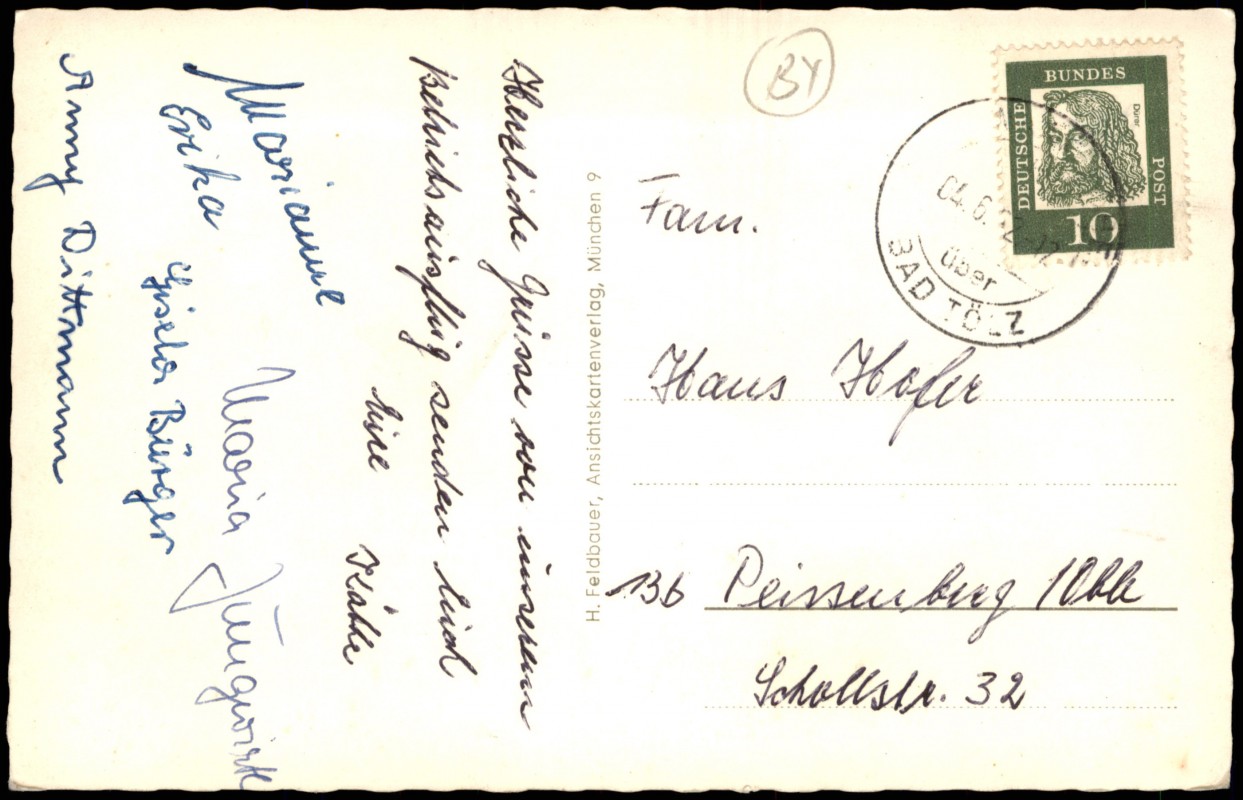 Herzliche Grüsse von unserem
Betriebsausflug senden Euch
Eure Käthe
Marianne
Erika
Maria Jungwirth
Gisela Bürger
Anny Dittmann
H. Feldbauer, Ansichtskartenverlag, München 9
BY
DEUTSCHE
BUNDES
POST
Dürer
10
04.6.
über
BAD TÖLZ
Fam.
Hans Hofer
13b Peissenberg /Obb
Schollstr. 32